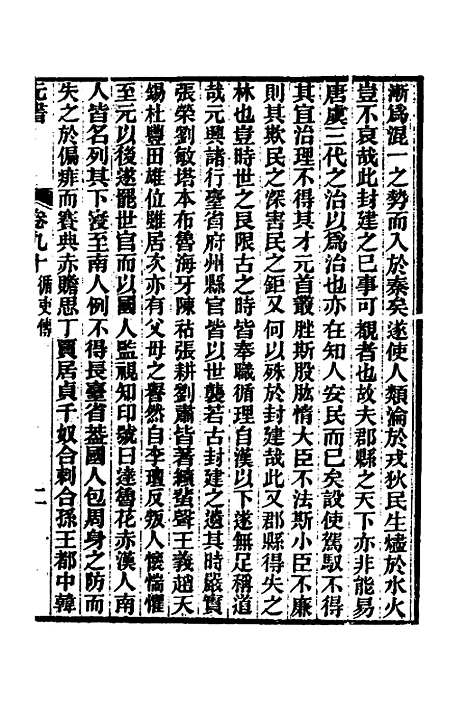 漸為混一之勢而入於秦矣遂使人類淪於戎狄民生燼於水火
豈不哀哉此封建之已事可覩者也故夫郡縣之天下亦非能易
唐虞三代之治以為治也亦在知人安民而已矣設使駕馭不得
其宜治理不得其才元首叢脞斯股肱惰大臣不法斯小臣不廉
則其欺民之深害民之鉅又何以殊於封建哉此又郡縣得失之
林也豈時世之艮限古之時皆奉職循理自漢以下遂無足稱道
哉元興諸行臺省府州縣官皆以世襲若古封建之遺其時嚴實
張榮劉敏塔本布魯海牙陳祐張耕劉肅皆著績蜚聲王義趙天
錫杜豐田雄位雖居次亦有父母之譽然自李璮反叛人懷惴懼
至元以後遂罷世官而以國人監視知印號日達魯花赤漢人南
人皆名列其下寖至南人例不得長臺省蓋國人包周身之防而
失之於偏痱而賽典赤贍思丁賈居貞千奴合剌合孫王都中韓
元書
卷九十循吏傳
二